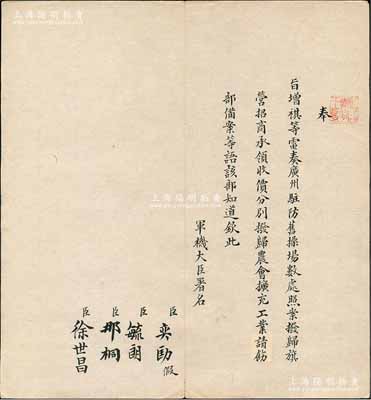 上海陽明拍賣
奉
旨增祺等電奏廣州駐防舊操場數處照案撥歸旗
營招商承領收價分別撥歸農會擴充工業請飭
部備案等語該部知道欽此
軍機大臣署名
臣奕劻假
臣毓朗
臣那桐
臣徐世昌
上海陽明拍賣